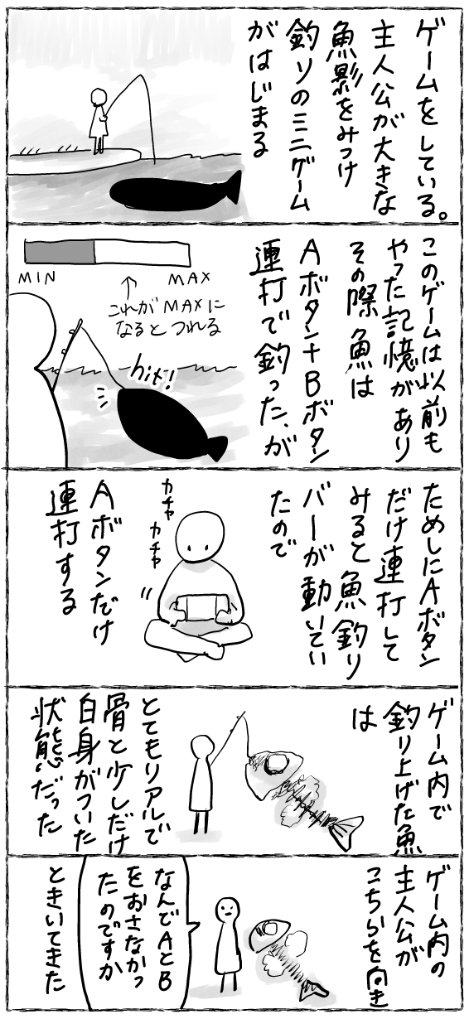 ゲームをしている。
主人公が大きな
魚影をみつけ
釣りのミニゲーム
がはじまる
このゲームは以前も
やった記憶があり
その際 魚は
Aボタン+Bボタン
連打で釣った、が
MIN
MAX
↑
これがMAXに
なるとつれる
hit!
ためしにAボタン
だけ連打して
みると魚釣り
バーが動いてい
たので
カチャ
カチャ
Aボタンだけ
連打する
ゲーム内で
釣り上げた魚
は
とてもリアルで
骨と少しだけ
白身がついた
状態だった
ゲーム内の
主人公が
こちらを向き
なんでAとB
をおさなかっ
たのですか
ときいてきた